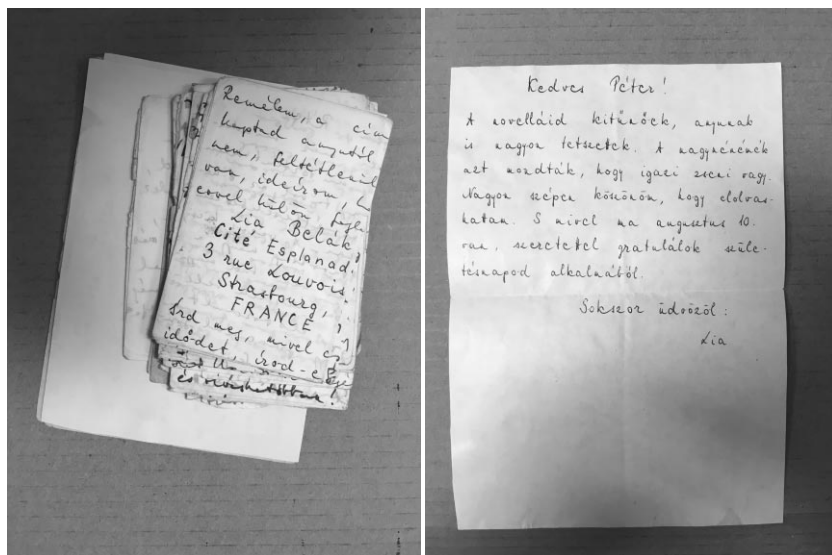 Remélem, a cím
kaptad anyutól,
nem, feltétlenül
van, ideírom,
külön
Lia Belák,
Cité Esplanad.
3 rue Louvois.
Strasbourg,
FRANCE
Írd meg, mivel
idődet, írod-e
Kedves Péter!
A novelláid kitűnőek, anyunak
is nagyon tetszetek. A nagynénénék
azt mondták, hogy igazi zseni vagy.
Nagyon szépen köszönöm, hogy elolvas-
hatam. S mivel ma augusztus 10.
van, szeretettel gratulálok szüle-
tésnapod alkalmából.
Sokszor üdvözöl:
Lia